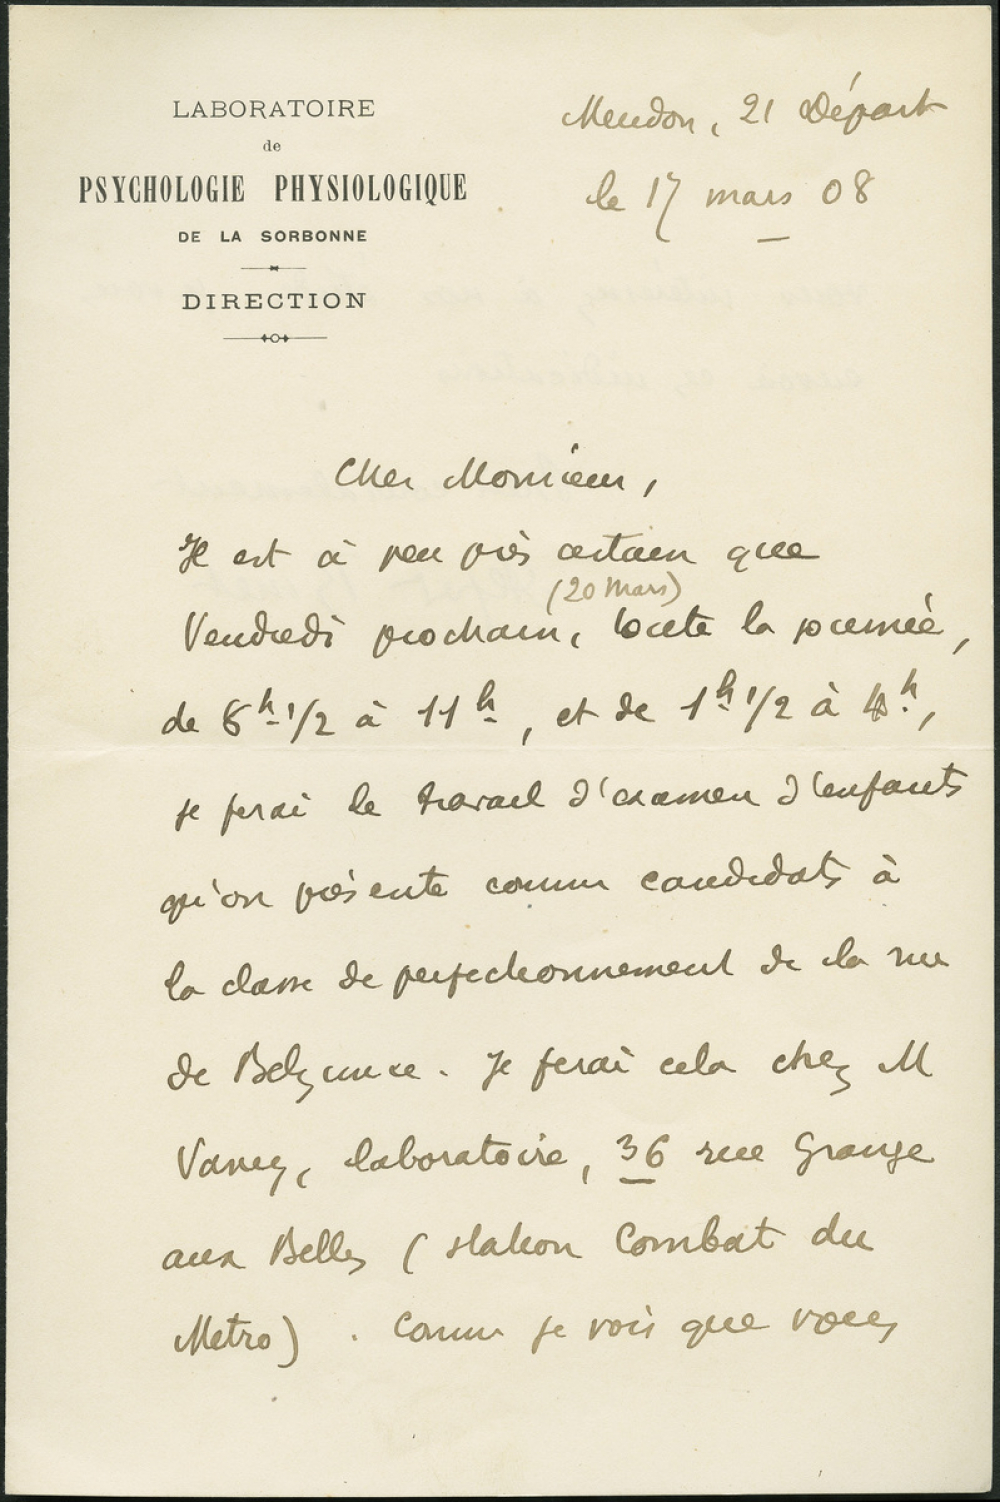 LABORATOIRE
de
PSYCHOLOGIE PHYSIOLOGIQUE
DE LA SORBONNE
DIRECTION
Meudon, 21 Départ
le 17 mars 08
Cher Monsieur,
Il est à peu près certain que
(20 Mars)
Vendredi prochain, toute la journée,
de 8h 1/2 à 11h, et de 1h 1/2 à 4h,
je ferai le travail d'examen d'enfants
qu'on présente comme candidats à
la classe de perfectionnement de la rue
de Belzunce. Je ferai cela chez M
Vaney, laboratoire, 36 rue Grange
aux Belles (station Combat du
Metro). Comme je vois que vous